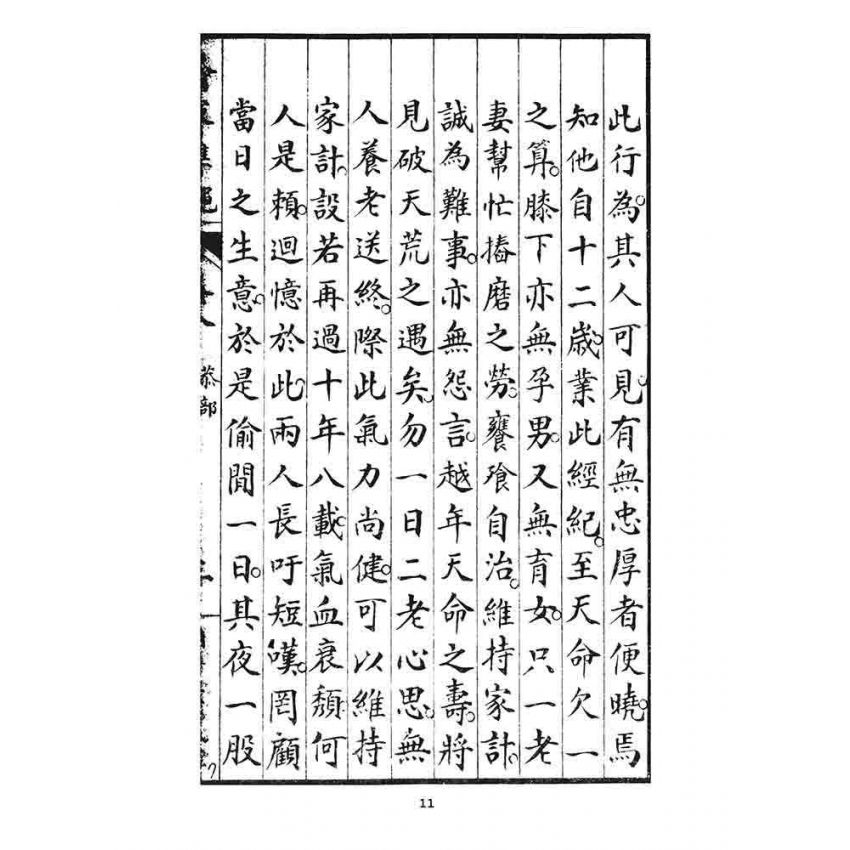 此行為。其人可見。有無忠厚者便曉。焉
知他自十二歲。業此經紀。至天命欠一
之算。膝下亦無孕男。又無育女。只一老
妻幫忙摏磨之勞。饔飧自治。維持家計。
誠為難事。亦無怨言。越年天命之壽。將
見破天荒之遇矣。勿一日二老心思。無
人養老送終。際此氣力尚健。可以維持
家計。設若再過十年八載。氣血衰頹。何
人是賴。迴憶於此。兩人長吁短嘆。罔顧
當日之生意。於是偷閒一日。其夜一股
恭部
11